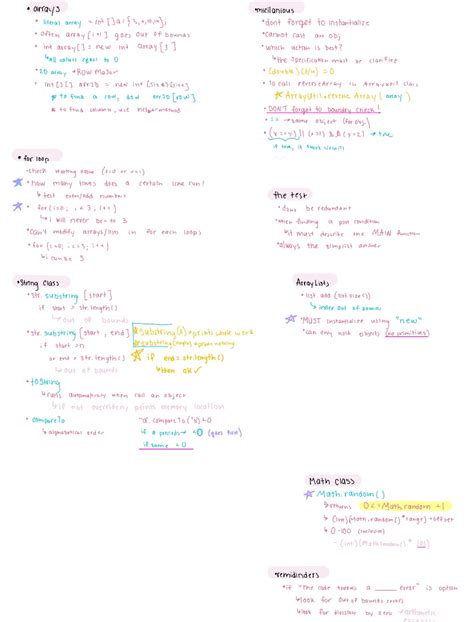 • arrays
• literal array = int [] a = { 3, 2, 10, 14 };
• often array [i+1] goes out of bounds
• int array [] = new int array [ ]
↳ all values equal to 0
• 2D array • Row Major
• int [][] arr2D = new int (size)(size)
★ to find a row, new arr2D [row]
★ to find column, use helper method
• for loop
• check starting value (i=0 or i=1)
★ • how many times does a certain line run?
↳ test even/odd numbers
★ • for (i=0; i < 3; i++)
↳ i will never be to 3
• can't modify arrays/lists in for each loops
• for (i=0; i<=3; i++)
↳ i can be 3
• String Class
• str. substring [start]
if start > str.length()
↳ out of bounds
• str. substring [start, end]
if start >n
or end > str.length()
↳ out of bounds
★ if end = str.length()
↳ then ok ✓
• toString
↳ calls automatically when call an object
↳ if not overriden, prints memory location
• compareTo
↳ alphabetical order
"a". compareTo ("x") <0
if a precedes → <0 (goes first)
if same = 0
• miscellanious
• don't forget to instantialize
• cannot call an obj
• which action is best?
↳ the specification must be clarified
• (double) (1/2) = 0
• To call reverseArray in ArrayUtil class
★ ArrayUtil.reverse Array ( array )
• DON'T forget to boundry check!
• == → same object (for obj)
→ true
if true, is short circuits
the test
• can be redundant
• when finding a pre condition
↳ it must describe the MAIN function
• always the simplist answer
ArrayLists
• list. add (list.size())
↳ index out of bounds
★ • MUST instantialize using "new"
• can only hold objects (no primitives)
Math class
★ • Math.random()
↳ returns 0 <= Math.random < 1
↳ (int)(Math.random() * range) + offset
↳ 0-100 (inclusive)
- (int)(Math.random() * 101)
• remidinders
• if "the code throws a ____ error" is option
↳ look for out of bounds error
↳ look for division by zero → arithmetic